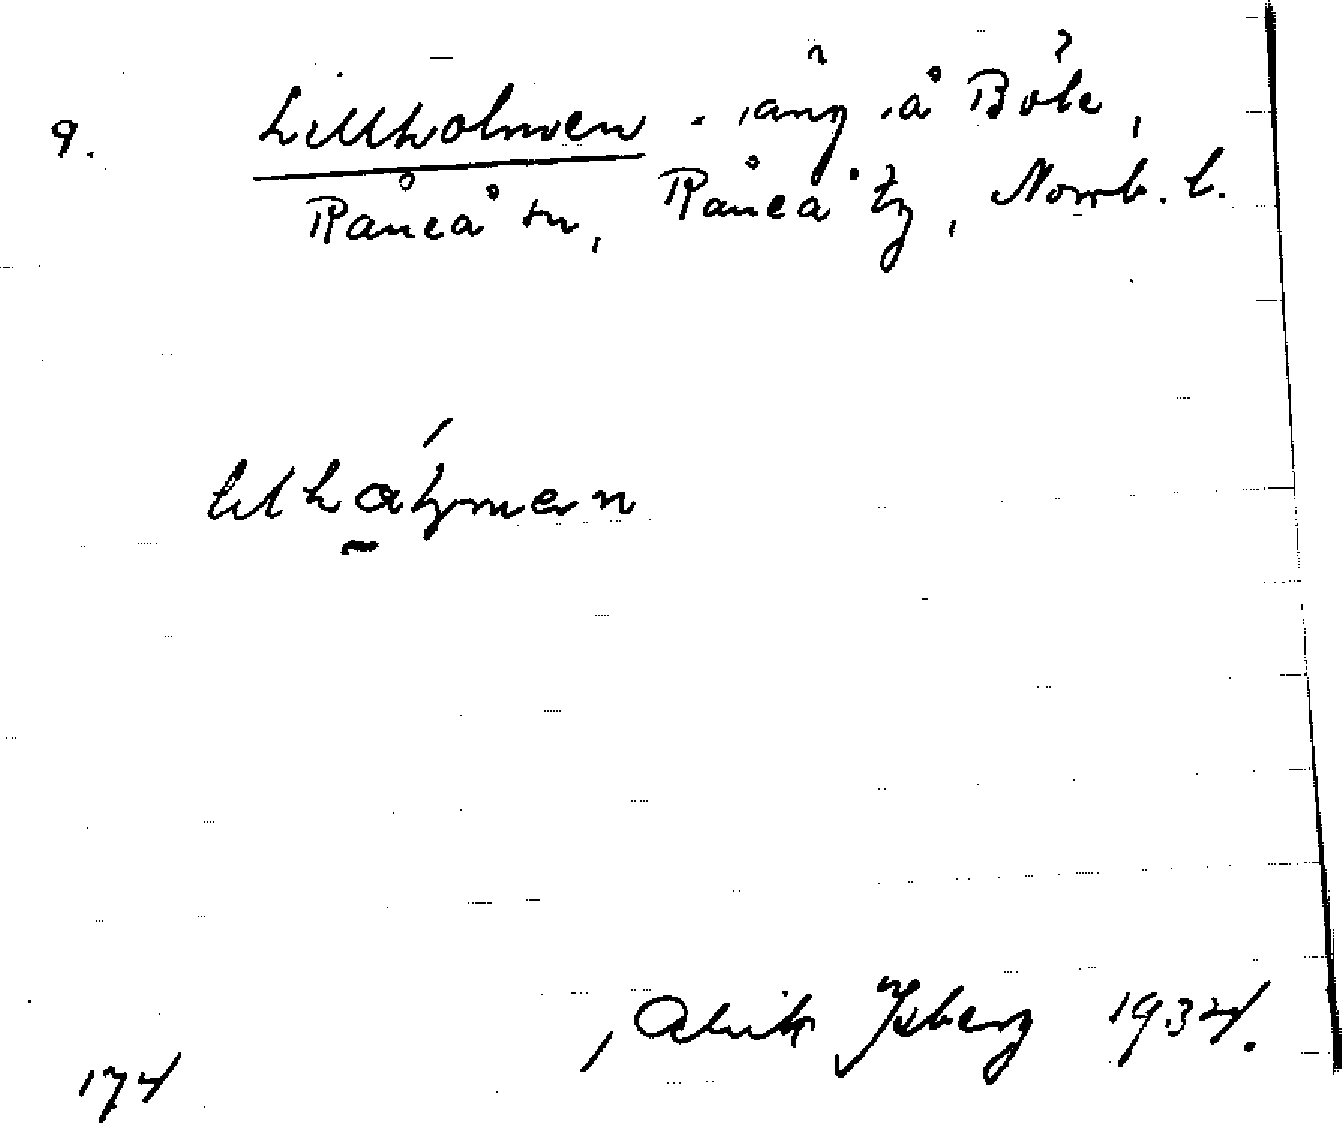 9. Lillholmen - äng å Böle,
Råneå sn, Råneå tg, Norrb. l.
Alrik Ysberg 1934.
174